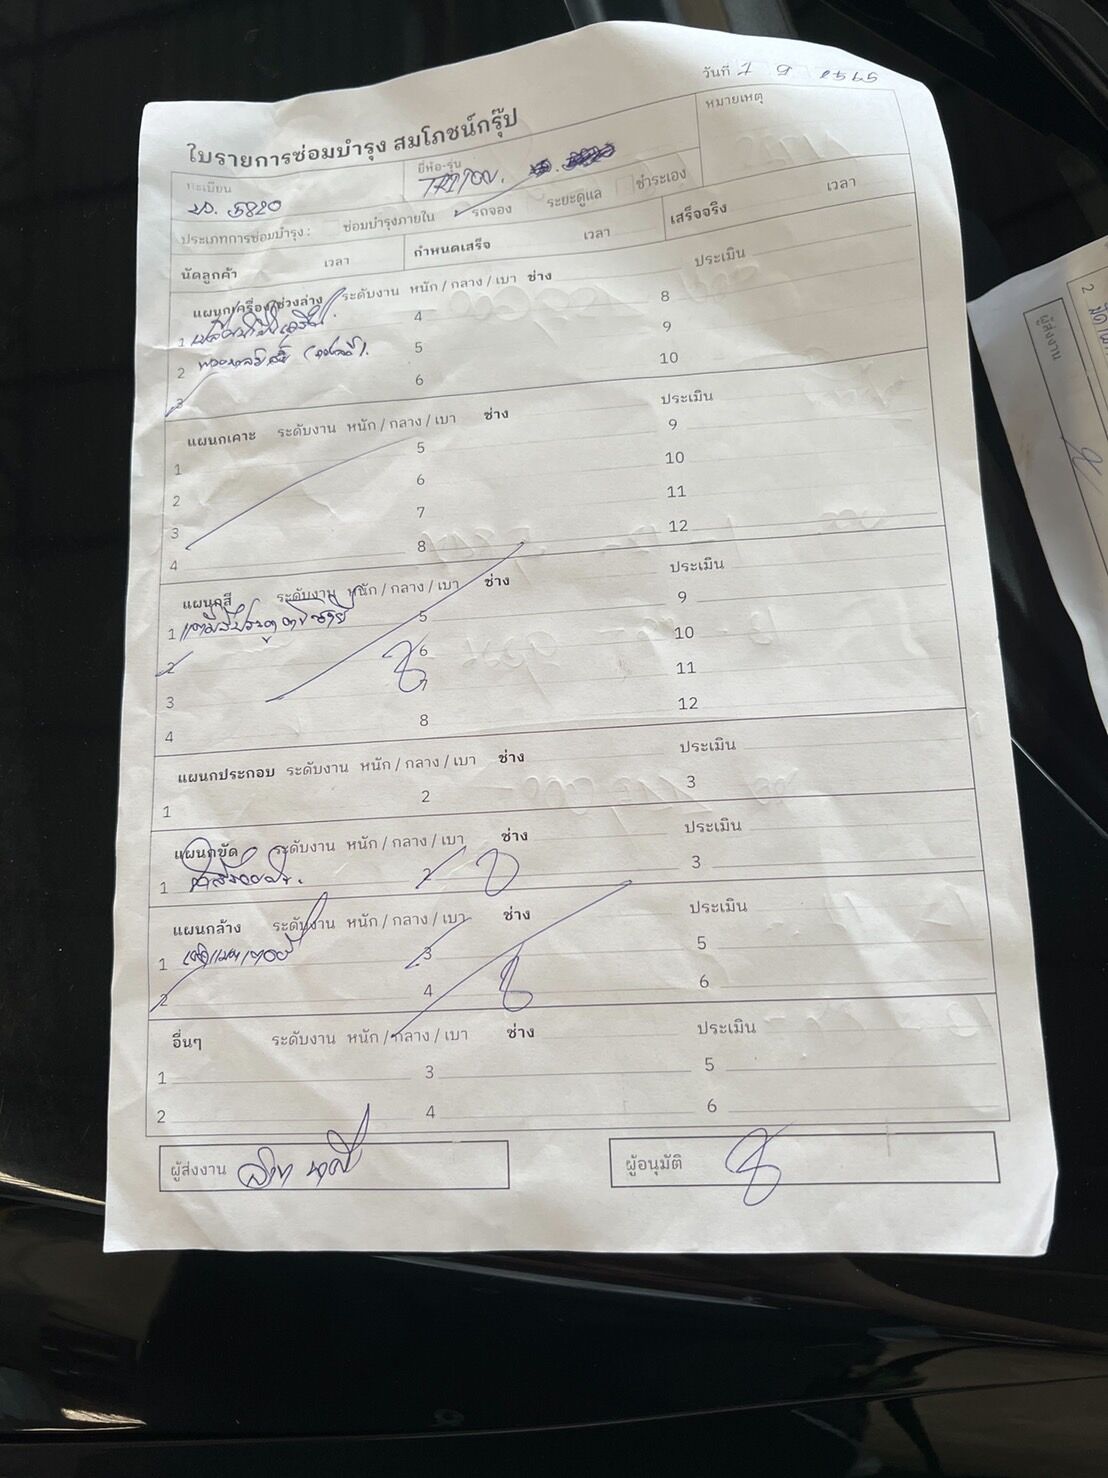 วันที่ 7 5 2565
ใบรายการซ่อมบำรุง สมโภชน์กรุ๊ป
หมายเหตุ
ทะเบียน
ยี่ห้อ-รุ่น
5820
TRITON.
ประเภทการซ่อมบำรุง : ซ่อมบำรุงภายใน รถจอง ระยะดูแล ชำระเอง
นัดลูกค้า เวลา กำหนดเสร็จ เวลา เสร็จจริง เวลา
แผนกเครื่อง/ช่วงล่าง ระดับงาน หนัก / กลาง / เบา ช่าง ประเมิน
1 4 8
2 5 9
3 6 10
แผนกเคาะ ระดับงาน หนัก / กลาง / เบา ช่าง ประเมิน
1 5 9
2 6 10
3 7 11
4 8 12
แผนกสี ระดับงาน หนัก / กลาง / เบา ช่าง ประเมิน
1 5 9
2 6 10
3 7 11
4 8 12
แผนกประกอบ ระดับงาน หนัก / กลาง / เบา ช่าง ประเมิน
1 2 3
แผนกขัด ระดับงาน หนัก / กลาง / เบา ช่าง ประเมิน
1 2 3
แผนกล้าง ระดับงาน หนัก / กลาง / เบา ช่าง ประเมิน
1 3 5
2 4 6
อื่นๆ ระดับงาน หนัก / กลาง / เบา ช่าง ประเมิน
1 3 5
2 4 6
ผู้ส่งงาน
ผู้อนุมัติ
ผู้ส่งงาน
2